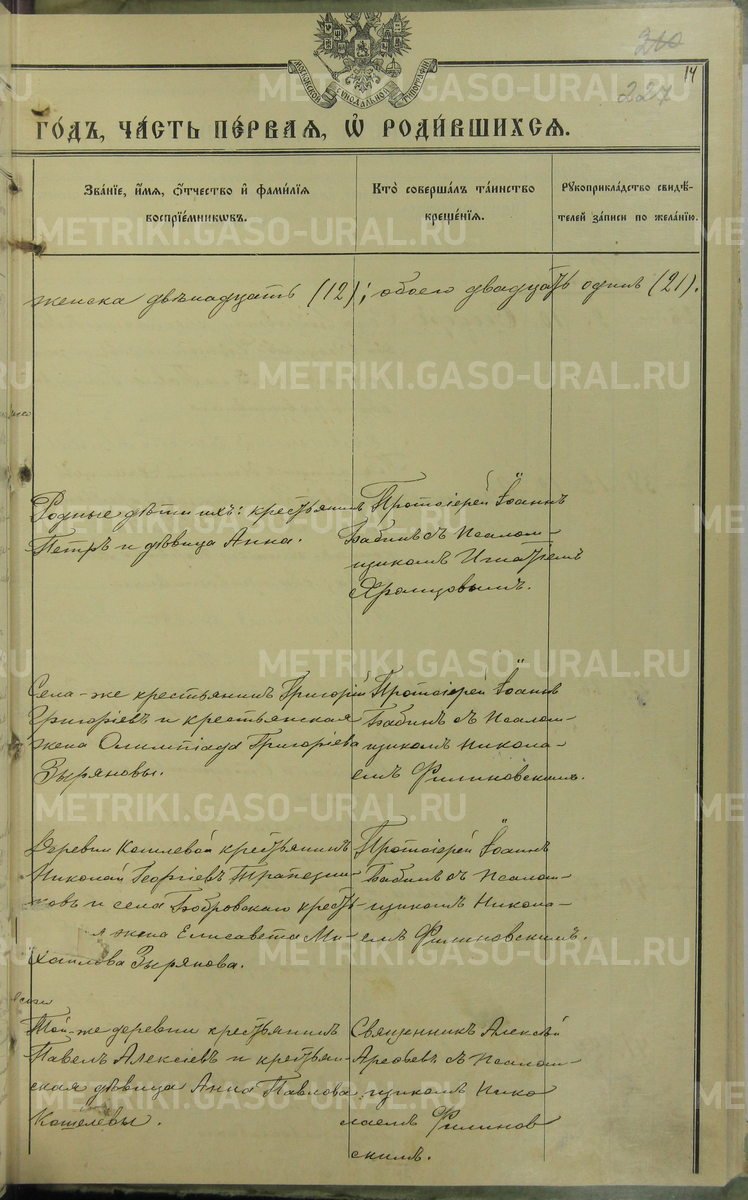 310
227
14
МОСКОВСКОЙ СѴНОДАЛЬНОЙ ТИПОГРАФІИ
ГО́ДЪ, ЧА́СТЬ ПЕ́РВАЯ, Ѡ҆ РОДИ́ВШИХСѦ.
Зва́нїе, и҆́мя, ѻ҆́тчество и҆ фами́лїя
воспрїе́мникѡвъ.
Кто̀ соверша́лъ та́инство
креще́нїя.
Рꙋкоприкла́дство свидѣ́-
телей за́писи по жела́нїю.
женска двѣнадцать (12); обоего двадцать одинъ (21).
Родные дѣти ихъ: крестьянинъ
Петръ и дѣвица Анна.
Протоіерей Іоаннъ
Бабинъ съ псалом-
щикомъ Игнатіемъ
Хромцовымъ.
Села-же крестьянинъ Григорій
Григоріевъ и крестьянская
жена Олимпіада Григоріева
Зыряновы.
Протоіерей Іоаннъ
Бабинъ съ псалом-
щикомъ Никола-
емъ Филиновскимъ.
Деревни Кошелевой крестьянинъ
Николай Георгіевъ Трапезни-
ковъ и села Бобровскаго кресть-
я жена Елисавета Ми-
хаилова Зырянова.
Протоіерей Іоаннъ
Бабинъ съ псалом-
щикомъ Никола-
емъ Филиновскимъ.
Той-же деревни крестьянинъ
Павелъ Алексіевъ и крестьян-
ская дѣвица Анна Павлова
Кошелевы.
Священникъ Алексѣй
Арефьевъ съ псалом-
щикомъ Нико
лаемъ Филинов
скимъ.
METRIKI.GASO-URAL.RU